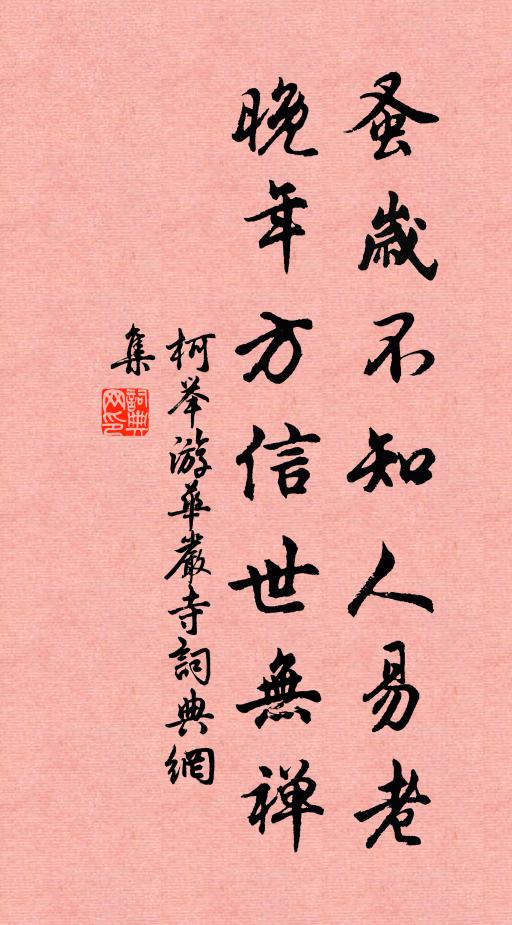 蚤歲不知人易老
晚年方信世無禅
柯举游華嚴寺詞典網
集
詞典
网印